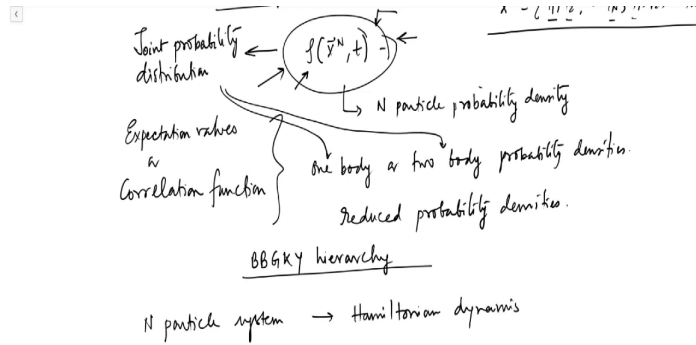 Joint probability
distribution
ρ(x⃗ᴺ, t)
N particle probability density
Expectation values
or
Correlation function
one body or two body probability densities.
reduced probability densities.
BBGKY hierarchy
N particle system → Hamiltonian dynamis